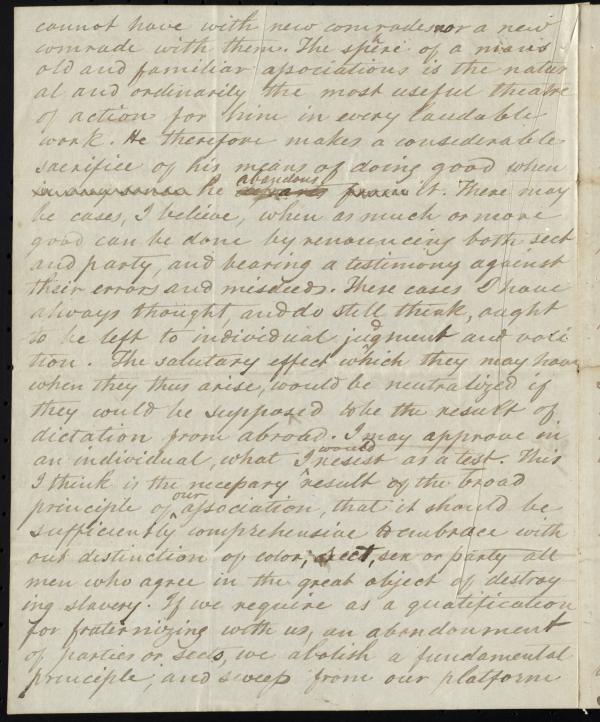 cannot have with new comrades nor a new
comrade with them. The sphere of a mans
old and familiar associations is the natur
al and ordinarily the most useful theatre
of action for him in every laudable
work. He therefore makes a considerable
sacrifice of his means of doing good when
he abandons it. There may
be cases, I believe, when as much or more
good can be done by renouncing both sect
and party, and bearing a testimony against
their errors and misdeeds. These cases I have
always thought, and do still think, ought
to be left to individual judgment and voli
tion. The salutary effect which they may have
when they thus arise, would be neutralized if
they would be supposed to be the result of
dictation from abroad. I may approve in
an individual, what I would resist as a test. This
I think is the necessary result of the broad
principle of our association, that it should be
sufficiently comprehensive to embrace with
out distinction of color, sect, sex or party all
men who agree in the great object of destroy
ing slavery. If we require as a qualification
for fraternizing with us, an abandonment
of parties or sects, we abolish a fundamental
principle, and sweep from our platform